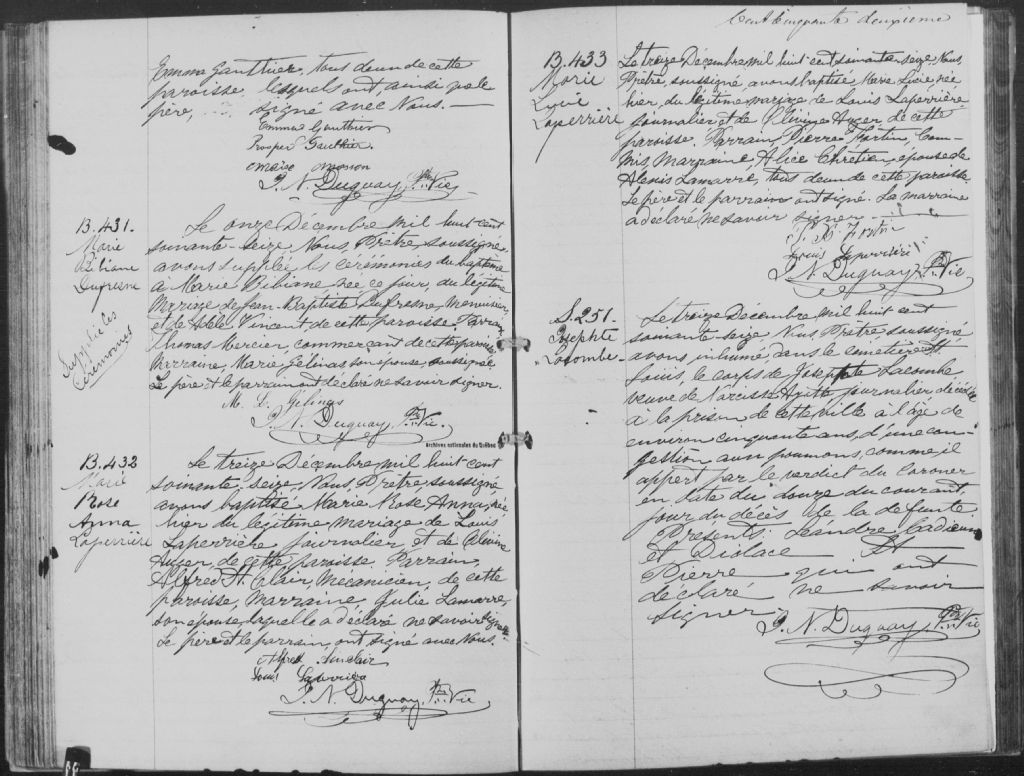 Emma Gauthier, tous deux de cette
paroisse, lesquels ont, ainsi que le
père, signé avec Nous. —
Emma Gauthier
Prosper Gauthier
Masson
J. N. Duguay, Ptre Vic
B. 431.
Marie
Bibiane
Dufresne
Suppléées
Cérémonies
Le onze Décembre mil huit cent
soixante-seize, Nous, Prêtre soussigné,
avons suppléé les cérémonies du baptême
à Marie Bibiane née ce jour, du légitime
mariage de Jean-Baptiste Dufresne, menuisier,
et de Adèle Vincent de cette paroisse. Parrain
Thomas Mercier, commerçant de cette paroisse
Marraine, Marie Gélinas son épouse, soussignée
Le père et le parrain ont déclaré ne savoir signer.
M. L. Gelinas
J. N. Duguay, Ptre Vic.
Archives nationales du Québec
B. 432
Marie
Rose
Anna
Laperrière
Le treize Décembre mil huit cent
soixante-seize, Nous, Prêtre soussigné
avons baptisé Marie Rose Anna, née
hier du légitime mariage de Louis
Laperrière journalier et de Olivine
Auger, de cette paroisse. Parrain,
Alfred St. Clair, Mécanicien, de cette
paroisse, Marraine Julie Lamarre,
son épouse, laquelle a déclaré ne savoir signer.
Le père et le parrain, ont signé avec Nous.
Alfred Sinclair
Louis Laperrière
J. N. Duguay, Ptre Vic
Cent cinquante deuxième
B. 433
Marie
Livie
Laperrière
Le treize Décembre mil huit cent soixante seize, Nous,
Prêtre, soussigné avons baptisé, Marie Livie, née
hier, du légitime mariage de Louis Laperrière,
journalier et de Olivine Auger de cette
paroisse. Parrain, Pierre Fortin, Com-
mis, Marraine Alice Chrétien, épouse de
Alexis Lamarre, tous deux de cette paroisse.
Le père et le parrain ont signé. La marraine
a déclaré ne savoir signer.
Fortin
Louis Laperrière
J. N. Duguay, Ptre Vic
S. 251.
Josephte
Lacombe
Le treize Décembre mil huit cent
soixante-seize, Nous Prêtre soussigné
avons inhumé, dans le cimetière St
Louis, le corps de Josephte Lacombe
veuve de Narcisse Ayotte journalier décédée
à la prison de cette ville a l'âge de
environ cinquante ans, d'une con-
gestion aux poumons, comme il
appert par le verdict du Coroner
en date du douze du courant,
jour du décès de la défunte
Présents Léandre Cadieux
et Diolace St
Pierre qui ont
déclaré ne savoir
signer
J. N. Duguay, Ptre Vic